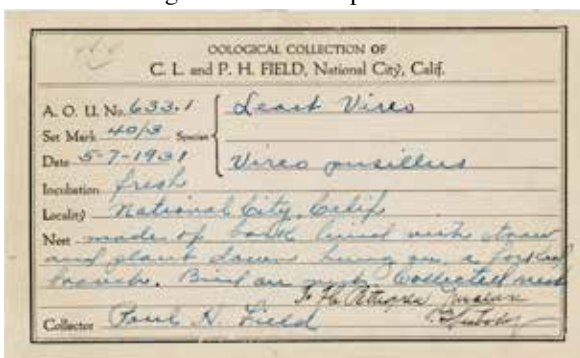 OOLOGICAL COLLECTION OF
C. L. and P. H. FIELD, National City, Calif.
A. O. U. No. 633.1
Least Vireo
Set Mark 40/3 Species
Date 5-7-1931
Vireo pusillus
Incubation fresh
Locality National City, Calif
Nest made of bark lined with
and plant down hung on a forked
branch. Bird on nest. Collected nest
Collector Paul H. Field